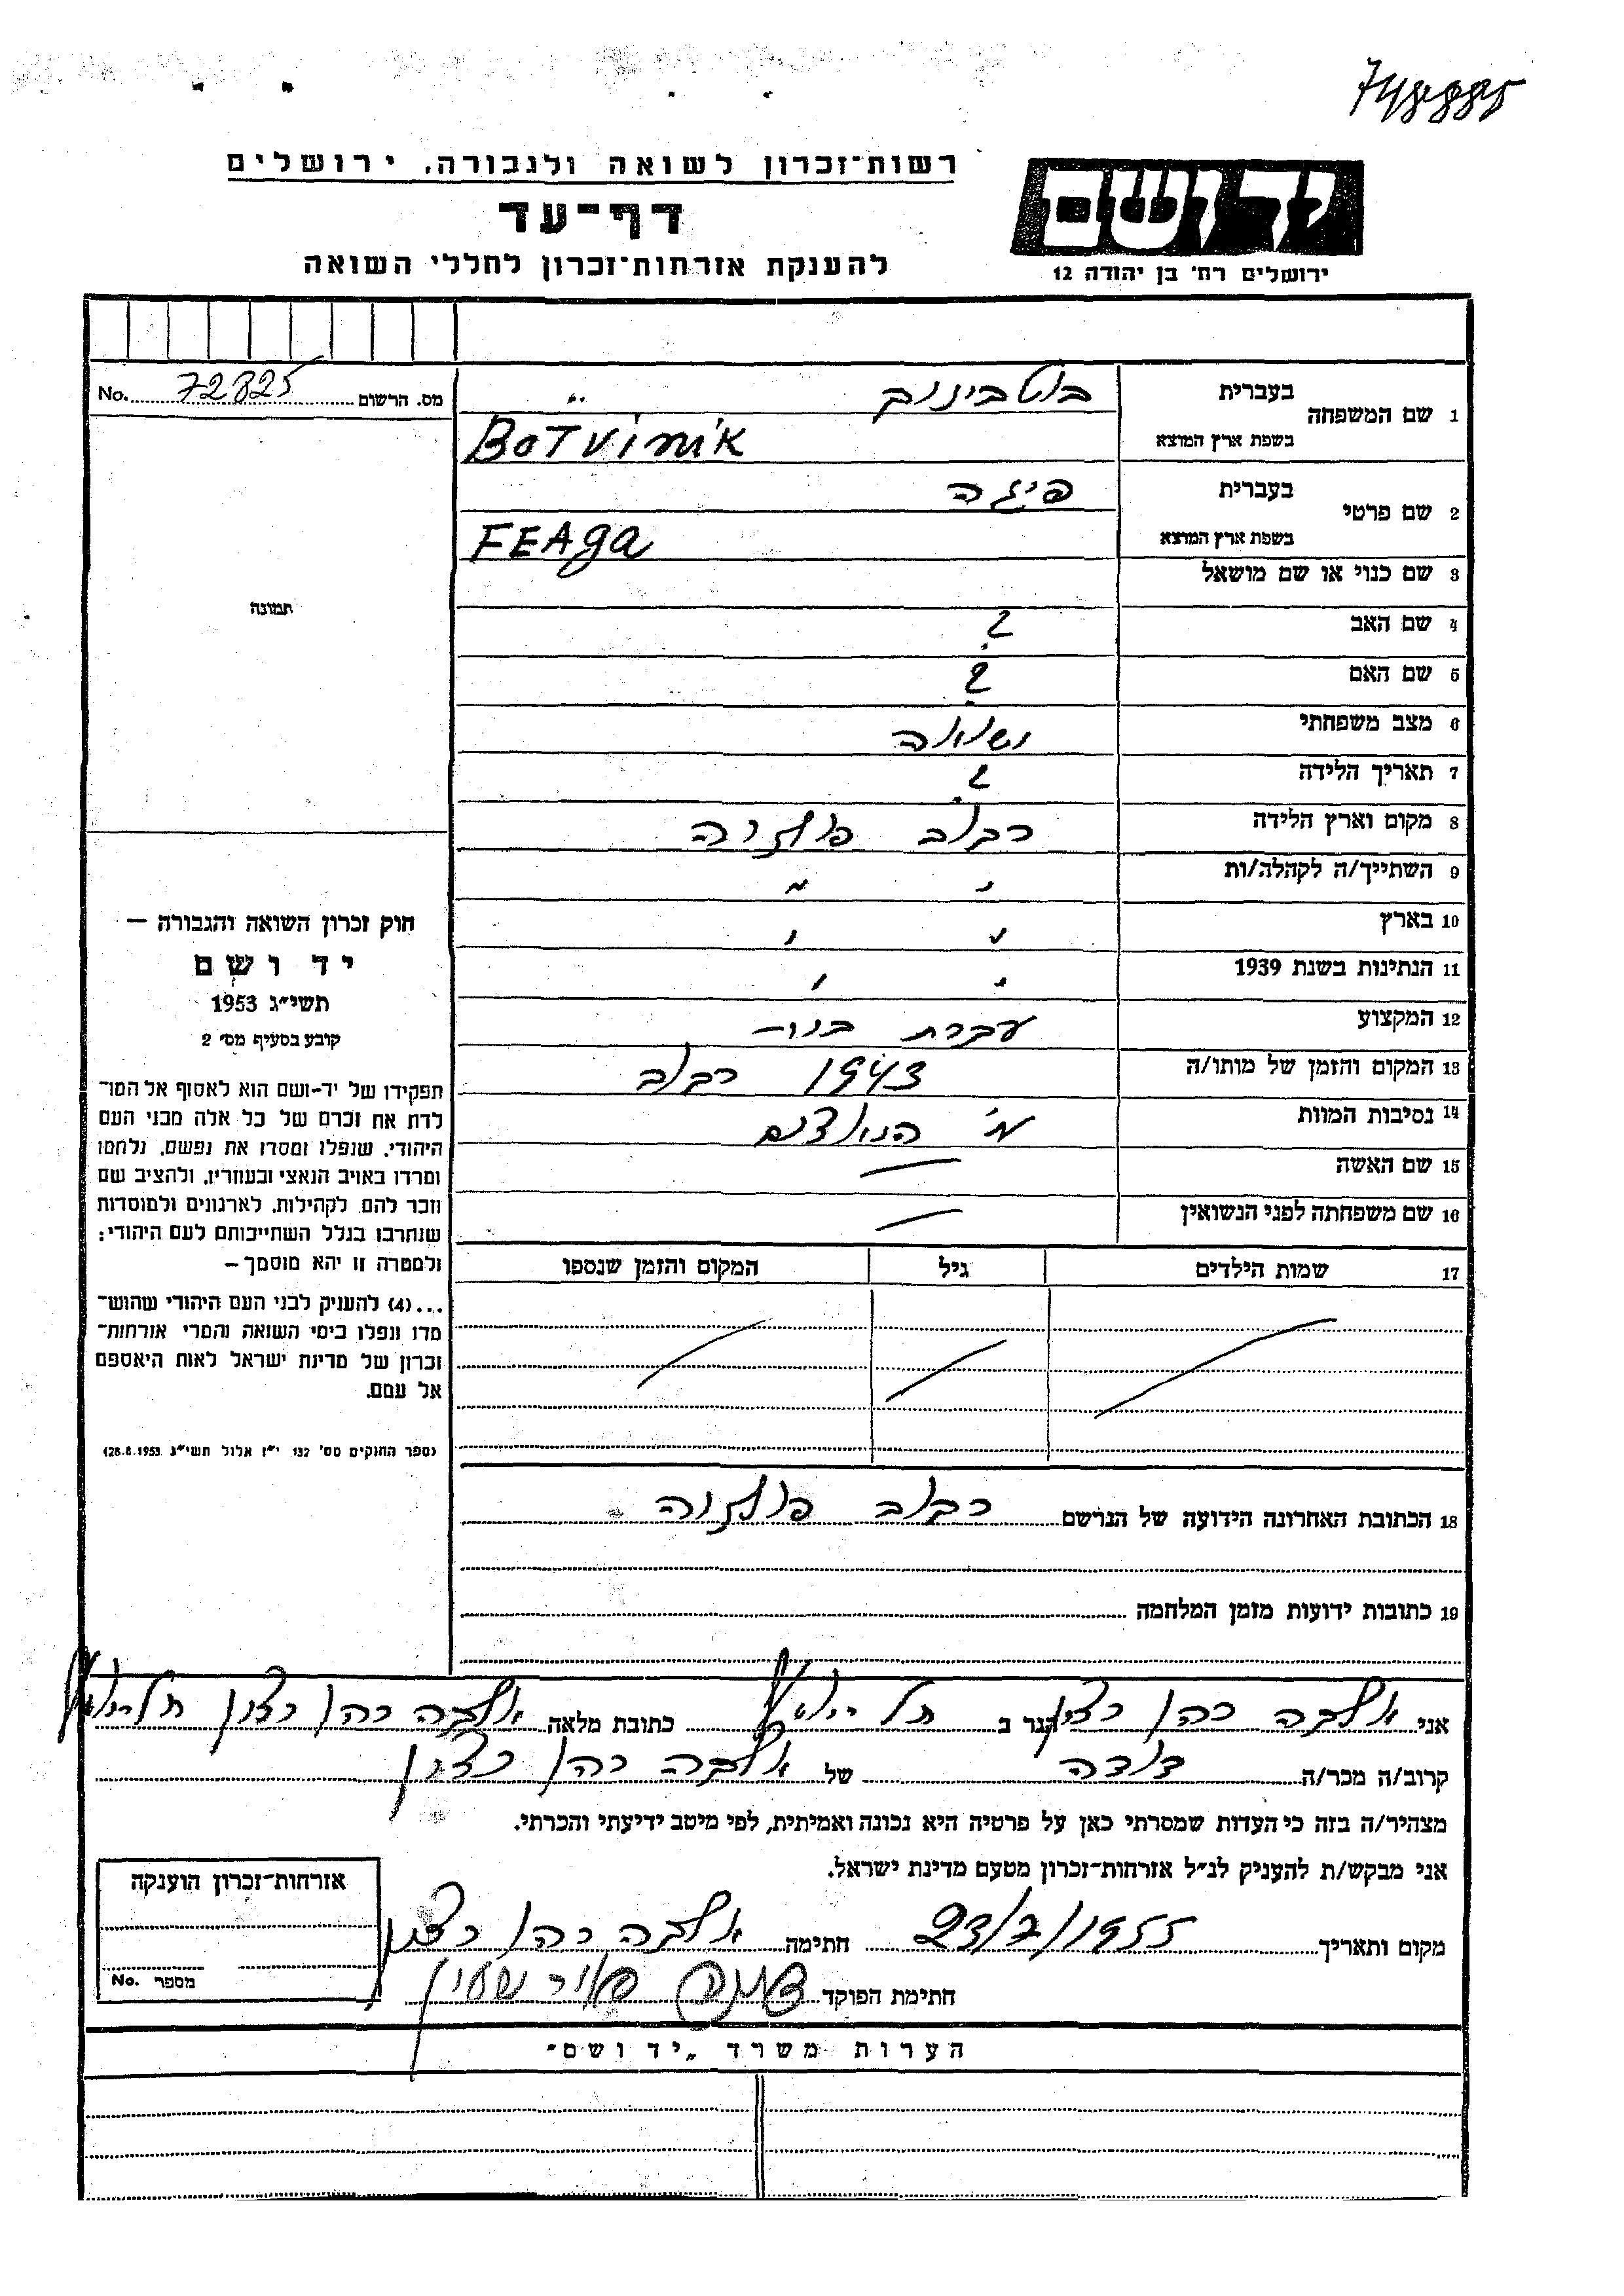 748885
רשות־זכרון לשואה ולגבורה, ירושלים
יד ושם
דף־עד
להענקת אזרחות־זכרון לחללי השואה
ירושלים רח׳ בן יהודה 12
No. 72825 מס. הרשום
1 שם המשפחה בעברית
בשפת ארץ המוצא BOTVINIK
2 שם פרטי בעברית פיגה
בשפת ארץ המוצא FEAga
3 שם כנוי או שם מושאל
4 שם האב ?
5 שם האם ?
6 מצב משפחתי נשואה
7 תאריך הלידה ?
8 מקום וארץ הלידה רקוב פולניה
9 השתייך/ה לקהלה/ות " "
10 בארץ " "
11 הנתינות בשנת 1939 " "
12 המקצוע עקרת בית
13 המקום והזמן של מותו/ה 1943 רקוב
14 נסיבות המוות
15 שם האשה —
16 שם משפחתה לפני הנשואין —
17 שמות הילדים גיל המקום והזמן שנספו
תמונה
חוק זכרון השואה והגבורה —
יד ושם
תשי״ג 1953
קובע בסעיף מס׳ 2
תפקידו של יד-ושם הוא לאסוף אל המו־
לדת את זכרם של כל אלה מבני העם
היהודי, שנפלו ומסרו את נפשם, נלחמו
ומרדו באויב הנאצי ובעוזריו, ולהציב שם
וזכר להם, לקהילות, לארגונים ולמוסדות
שנחרבו בגלל השתייכותם לעם היהודי:
ולמטרה זו יהא מוסמך —
...(4) להעניק לבני העם היהודי שהוש־
מדו ונפלו בימי השואה והמרי אזרחות־
זכרון של מדינת ישראל לאות היאספם
אל עמם.
(ספר החוקים מס׳ 132 י״ז אלול תשי״ג 28.8.1953)
18 הכתובת האחרונה הידועה של הנרשם רקוב פולניה
19 כתובות ידועות מזמן המלחמה
אני כהן הגר ב תל כתובת מלאה כהן
קרוב/ה מכר/ה דודה של כהן
מצהיר/ה בזה כי העדות שמסרתי כאן על פרטיה היא נכונה ואמיתית, לפי מיטב ידיעתי והכרתי.
אני מבקש/ת להעניק לנ״ל אזרחות־זכרון מטעם מדינת ישראל.
מקום ותאריך 23/7/1955 חתימה כהן
חתימת הפוקד
אזרחות־זכרון הוענקה
No. מספר
הערות משרד „יד ושם״